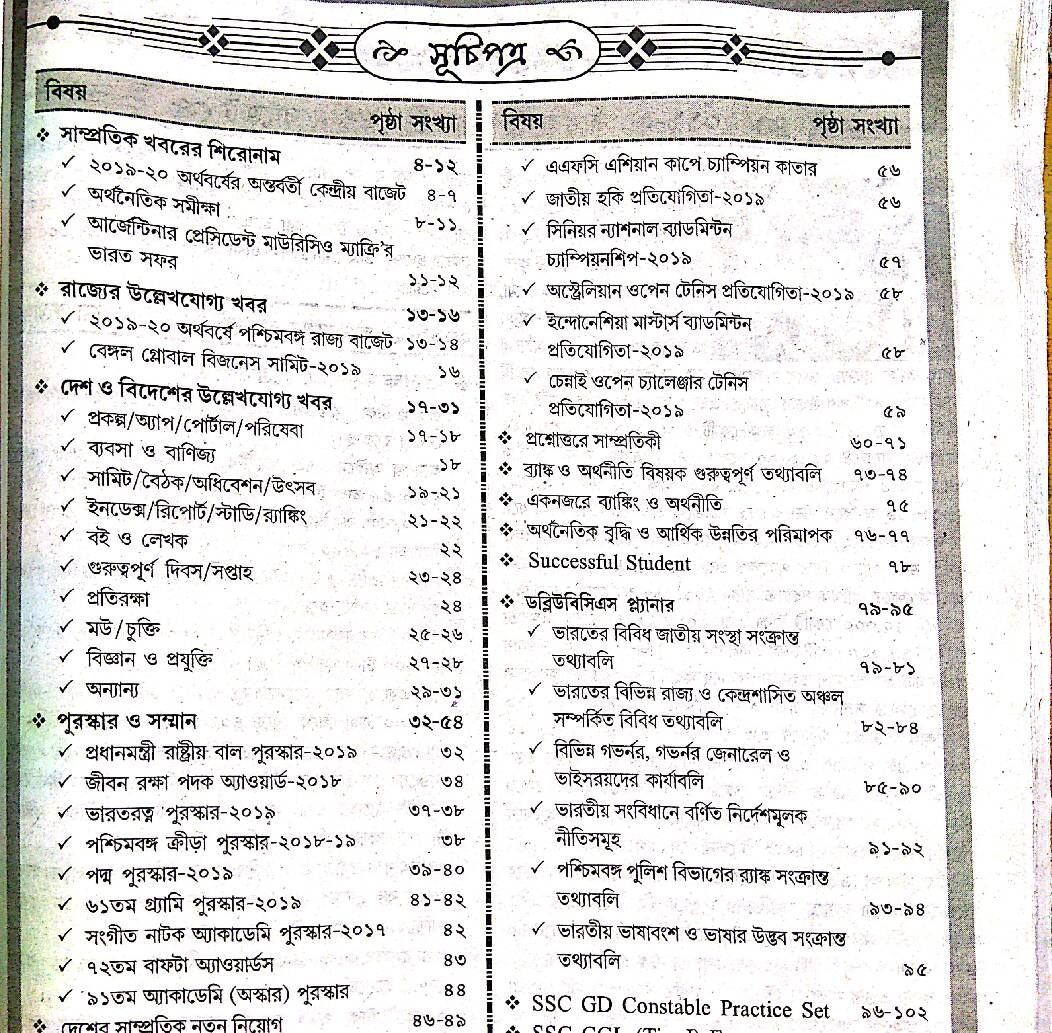 সূচিপত্র
বিষয় পৃষ্ঠা সংখ্যা
❖ সাম্প্রতিক খবরের শিরোনাম ৪-১২
✓ ২০১৯-২০ অর্থবর্ষের অন্তর্বর্তী কেন্দ্রীয় বাজেট ৪-৭
✓ অর্থনৈতিক সমীক্ষা ৮-১১
✓ আর্জেন্টিনার প্রেসিডেন্ট মাউরিসিও ম্যাক্রি'র
ভারত সফর ১১-১২
❖ রাজ্যের উল্লেখযোগ্য খবর ১৩-১৬
✓ ২০১৯-২০ অর্থবর্ষে পশ্চিমবঙ্গ রাজ্য বাজেট ১৩-১৪
✓ বেঙ্গল গ্লোবাল বিজনেস সামিট-২০১৯ ১৬
❖ দেশ ও বিদেশের উল্লেখযোগ্য খবর ১৭-৩১
✓ প্রকল্প/অ্যাপ/পোর্টাল/পরিষেবা ১৭-১৮
✓ ব্যবসা ও বাণিজ্য ১৮
✓ সামিট/বৈঠক/অধিবেশন/উৎসব ১৯-২১
✓ ইনডেক্স/রিপোর্ট/স্টাডি/র‍্যাঙ্কিং ২১-২২
✓ বই ও লেখক ২২
✓ গুরুত্বপূর্ণ দিবস/সপ্তাহ ২৩-২৪
✓ প্রতিরক্ষা ২৪
✓ মউ/চুক্তি ২৫-২৬
✓ বিজ্ঞান ও প্রযুক্তি ২৭-২৮
✓ অন্যান্য ২৯-৩১
❖ পুরস্কার ও সম্মান ৩২-৫৪
✓ প্রধানমন্ত্রী রাষ্ট্রীয় বাল পুরস্কার-২০১৯ ৩২
✓ জীবন রক্ষা পদক অ্যাওয়ার্ড-২০১৮ ৩৪
✓ ভারতরত্ন পুরস্কার-২০১৯ ৩৭-৩৮
✓ পশ্চিমবঙ্গ ক্রীড়া পুরস্কার-২০১৮-১৯ ৩৮
✓ পদ্ম পুরস্কার-২০১৯ ৩৯-৪০
✓ ৬১তম গ্র্যামি পুরস্কার-২০১৯ ৪১-৪২
✓ সংগীত নাটক অ্যাকাডেমি পুরস্কার-২০১৭ ৪২
✓ ৭২তম বাফটা অ্যাওয়ার্ডস ৪৩
✓ ৯১তম অ্যাকাডেমি (অস্কার) পুরস্কার ৪৪
❖ দেশের সাম্প্রতিক নতুন নিয়োগ ৪৬-৪৯
বিষয় পৃষ্ঠা সংখ্যা
✓ এএফসি এশিয়ান কাপে চ্যাম্পিয়ন কাতার ৫৬
✓ জাতীয় হকি প্রতিযোগিতা-২০১৯ ৫৬
✓ সিনিয়র ন্যাশনাল ব্যাডমিন্টন
চ্যাম্পিয়নশিপ-২০১৯ ৫৭
✓ অস্ট্রেলিয়ান ওপেন টেনিস প্রতিযোগিতা-২০১৯ ৫৮
✓ ইন্দোনেশিয়া মাস্টার্স ব্যাডমিন্টন
প্রতিযোগিতা-২০১৯ ৫৮
✓ চেন্নাই ওপেন চ্যালেঞ্জার টেনিস
প্রতিযোগিতা-২০১৯ ৫৯
❖ প্রশ্নোত্তরে সাম্প্রতিকী ৬০-৭১
❖ ব্যাঙ্ক ও অর্থনীতি বিষয়ক গুরুত্বপূর্ণ তথ্যাবলি ৭৩-৭৪
❖ একনজরে ব্যাঙ্কিং ও অর্থনীতি ৭৫
❖ অর্থনৈতিক বৃদ্ধি ও আর্থিক উন্নতির পরিমাপক ৭৬-৭৭
❖ Successful Student ৭৮
❖ ডব্লিউবিসিএস প্ল্যানার ৭৯-৯৫
✓ ভারতের বিবিধ জাতীয় সংস্থা সংক্রান্ত
তথ্যাবলি ৭৯-৮১
✓ ভারতের বিভিন্ন রাজ্য ও কেন্দ্রশাসিত অঞ্চল
সম্পর্কিত বিবিধ তথ্যাবলি ৮২-৮৪
✓ বিভিন্ন গভর্নর, গভর্নর জেনারেল ও
ভাইসরয়দের কার্যাবলি ৮৫-৯০
✓ ভারতীয় সংবিধানে বর্ণিত নির্দেশমূলক
নীতিসমূহ ৯১-৯২
✓ পশ্চিমবঙ্গ পুলিশ বিভাগের র‍্যাঙ্ক সংক্রান্ত
তথ্যাবলি ৯৩-৯৪
✓ ভারতীয় ভাষাবংশ ও ভাষার উদ্ভব সংক্রান্ত
তথ্যাবলি ৯৫
❖ SSC GD Constable Practice Set ৯৬-১০২
❖ SSC CGL